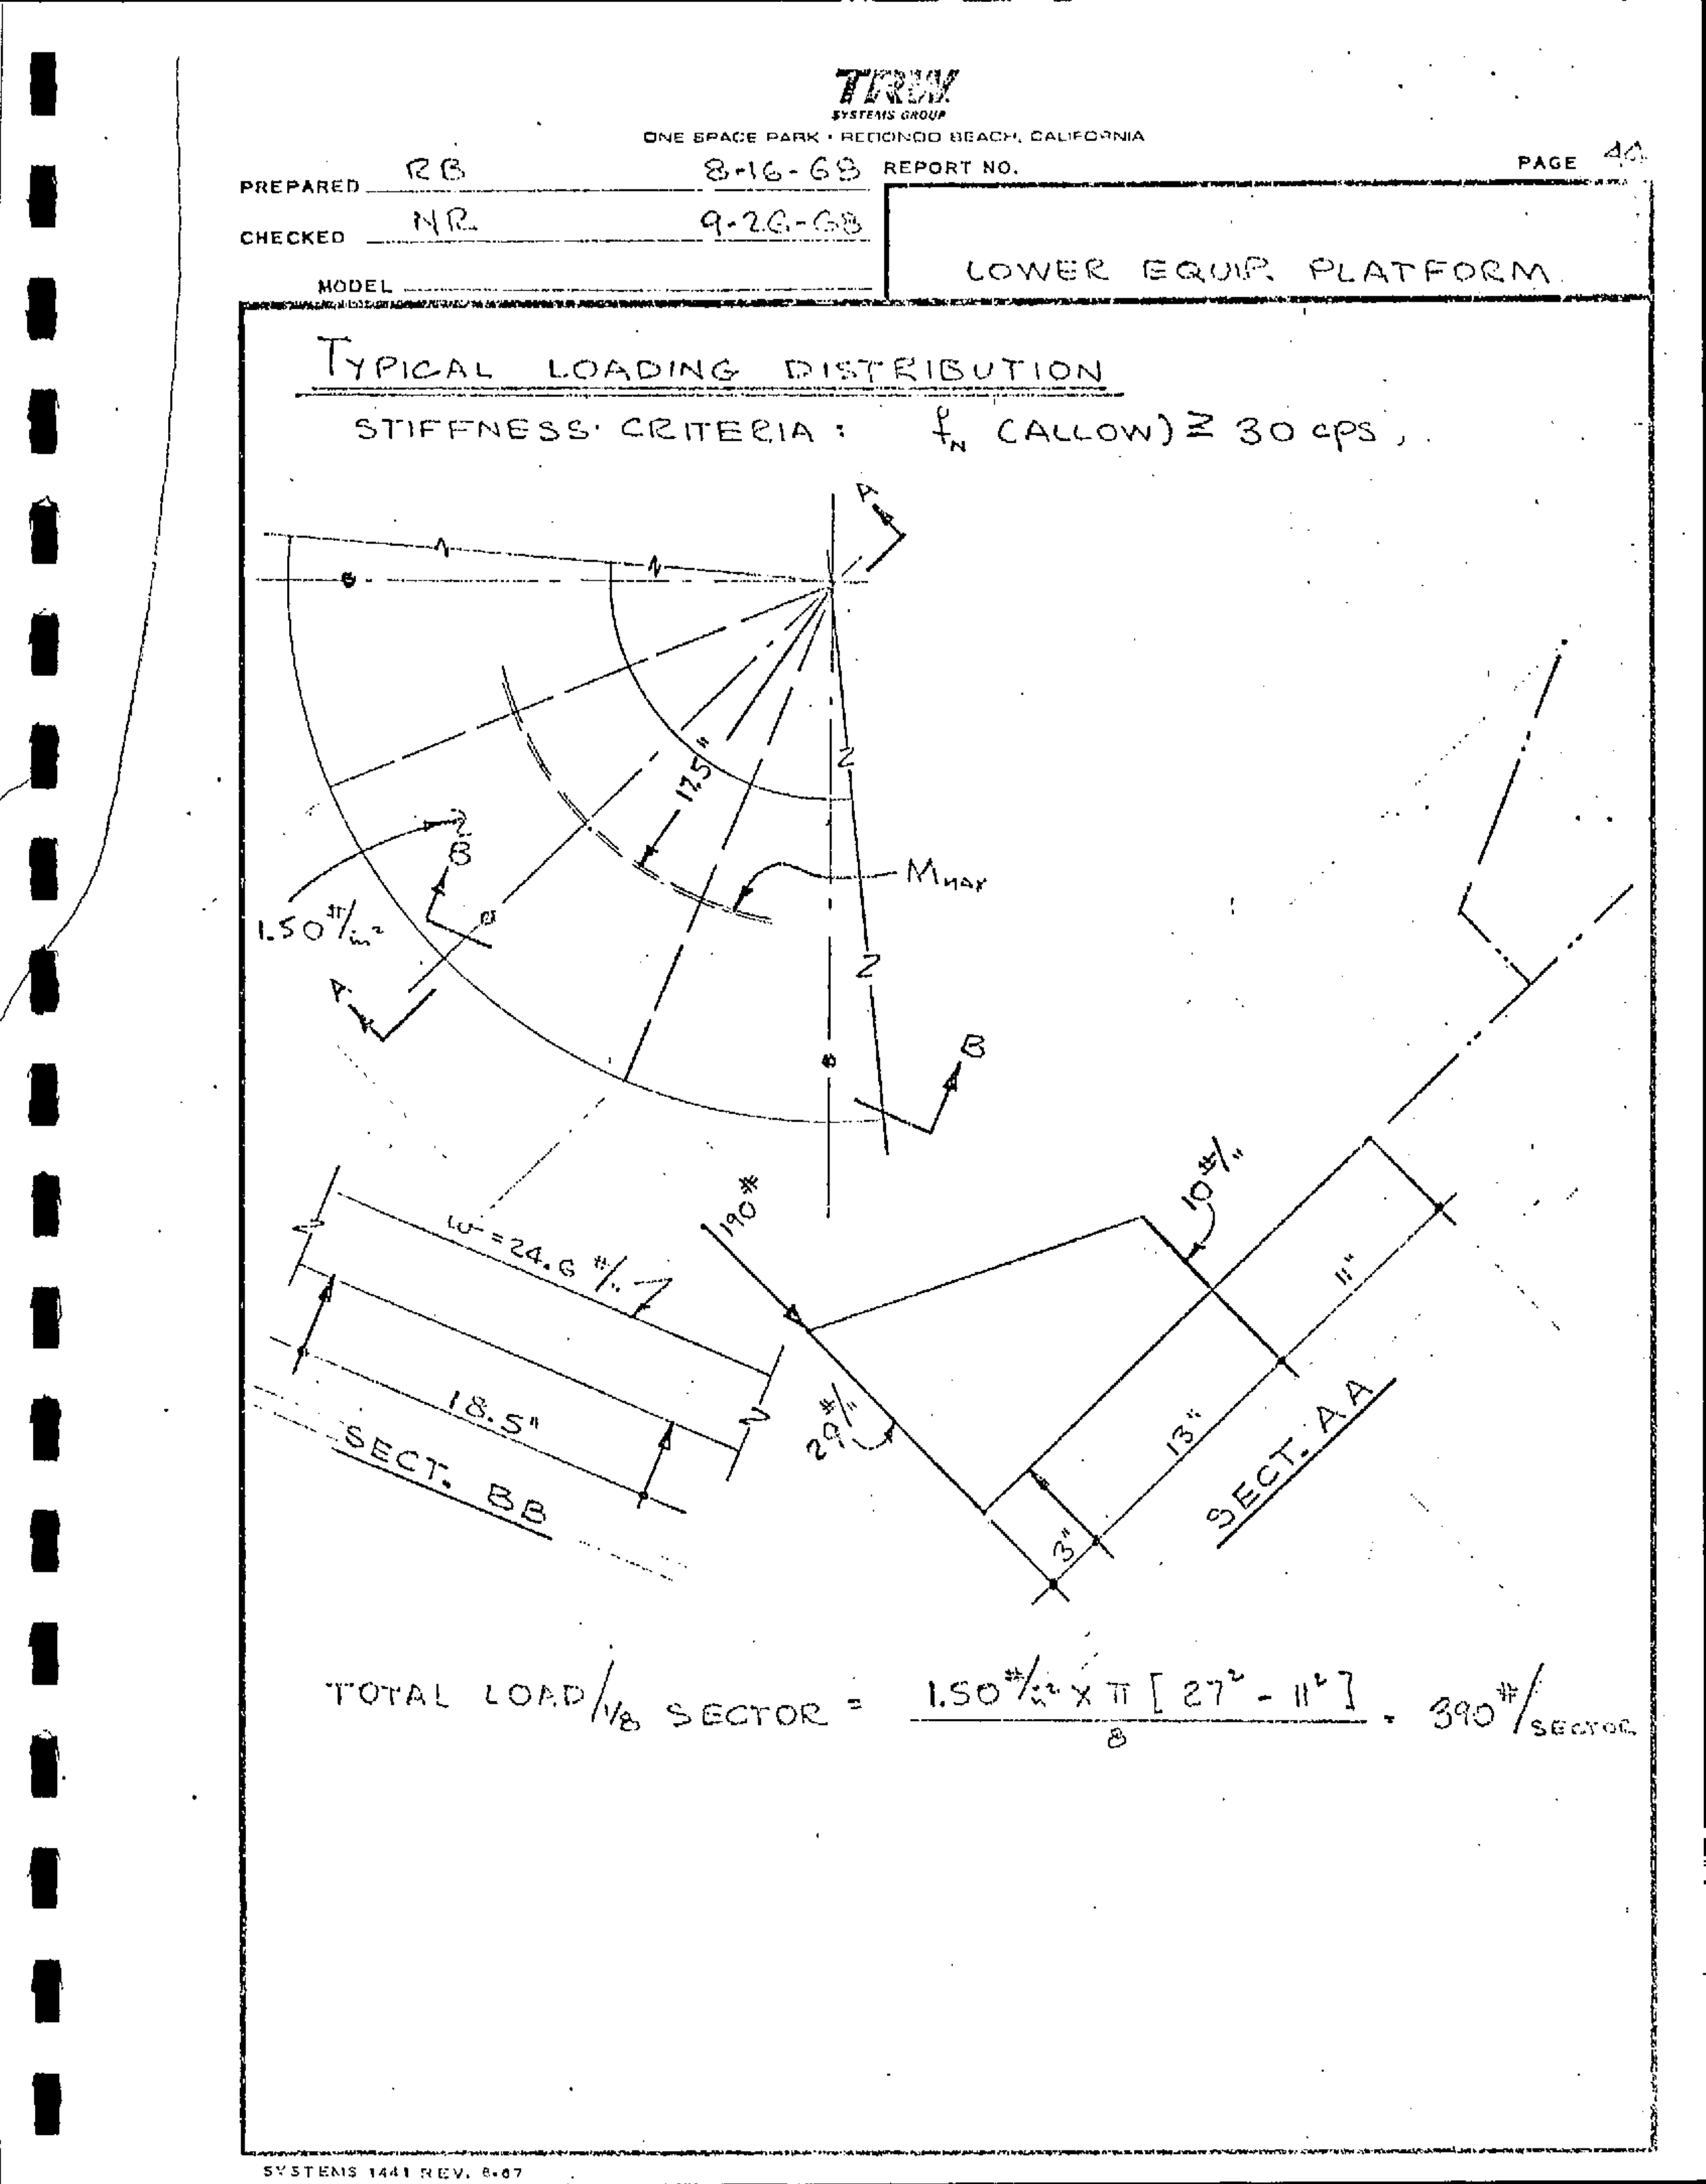 TRW
SYSTEMS GROUP
ONE SPACE PARK • REDONDO BEACH, CALIFORNIA
PREPARED RB 8-16-68 REPORT NO. PAGE
CHECKED NR 9-26-68
MODEL
LOWER EQUIP. PLATFORM
TYPICAL LOADING DISTRIBUTION
STIFFNESS CRITERIA: fN (ALLOW) ≥ 30 cps,
A
17.5"
B
MMAX
1.50 #/in²
A
B
190#
10 #/"
w = 24.6 #/"
11"
18.5"
29 #/"
13"
SECT. BB
SECT. AA
3"
TOTAL LOAD/1/8 SECTOR = 1.50 #/in² x π [27² - 11²] / 8 = 390 #/SECTOR
SYSTEMS 1441 REV. 8-67